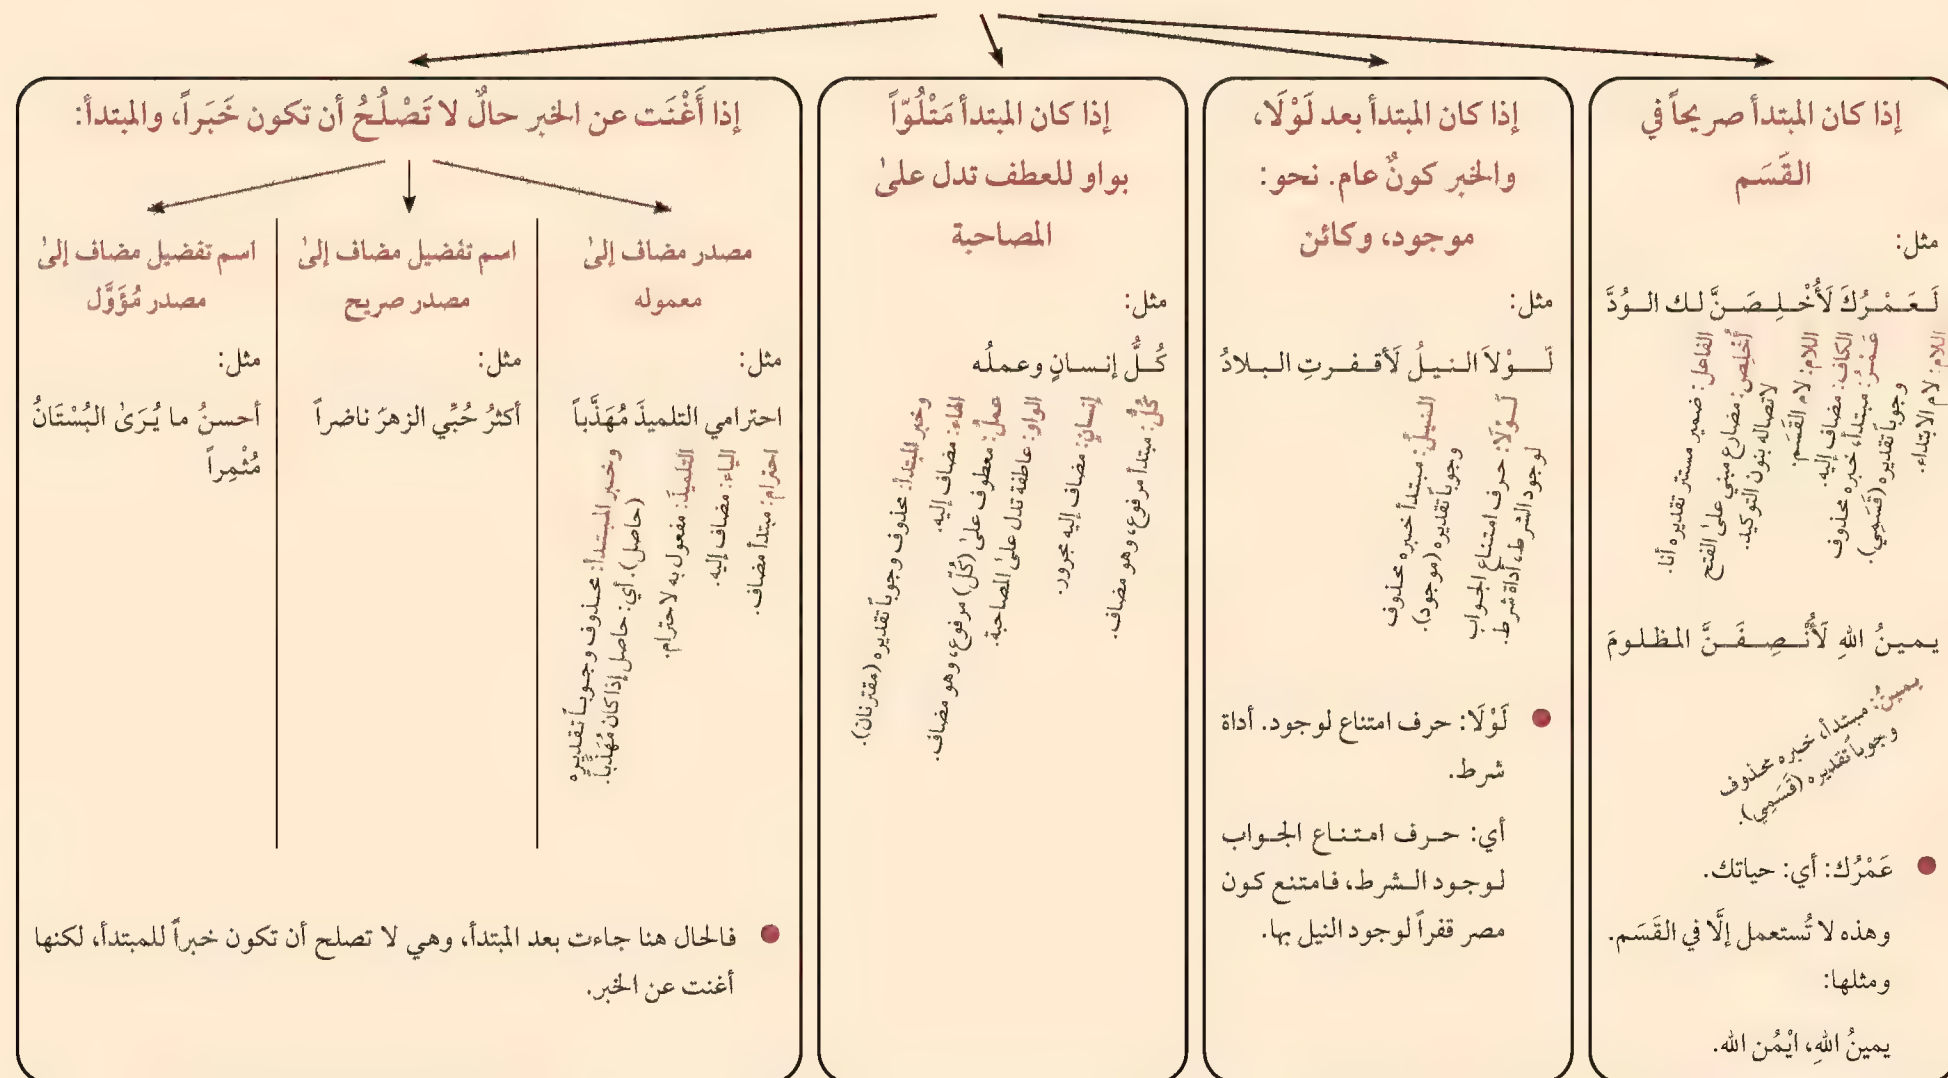 إذا كان المبتدأ صريحاً في
القَسَم
مثل:
لَـعَـمْـرُكَ لَأُخْـلِـصَـنَّ لـك الـوُدَّ
اللام: لام الابتداء.
عَمْرُ: مبتدأ، خبره محذوف
وجوباً تقديره (قَسَمِي).
الكاف: مضاف إليه.
اللام: لام القَسَم.
أُخْلِصَ: مضارع مبني علىٰ الفتح
لاتصاله بنون التوكيد.
الفاعل: ضمير مستتر تقديره أنا.
يـمـينُ اللهِ لَأُنْـصِـفَـنَّ المظلومَ
يمينُ: مبتدأ، خبره محذوف
وجوباً تقديره (قَسَمِي).
عَمْرُك: أي: حياتك.
وهذه لا تُستعمل إلَّا في القَسَم.
ومثلها:
يمينُ اللهِ، ايْمُن الله.
إذا كان المبتدأ بعد لَوْلَا،
والخبر كونٌ عام. نحو:
موجود، وكائن
مثل:
لَـــوْلاَ الـنـيـلُ لَأقـفـرتِ الـبـلادُ
لَـوْلَا: حرف امتناع الجواب
لوجود الشرط، أداة شرط.
النيلُ: مبتدأ خبره محذوف
وجوباً تقديره (موجود).
لَوْلَا: حرف امتناع لوجود. أداة
شرط.
أي: حـرف امـتـنـاع الجـواب
لـوجـود الـشـرط، فـامتنع كون
مصر قفراً لوجود النيل بها.
إذا كان المبتدأ مَتْلُوّاً
بواو للعطف تدل علىٰ
المصاحبة
مثل:
كُــلُّ إنـسـانٍ وعـمـلُه
كُلُّ: مبتدأ مرفوع، وهو مضاف.
إنسانٍ: مضاف إليه مجرور.
الواو: عاطفة تدل علىٰ المصاحبة.
عملُ: معطوف علىٰ (كُلّ) مرفوع، وهو مضاف.
الهاء: مضاف إليه.
وخبر المبتدأ: محذوف وجوباً تقديره (مقترنان).
إذا أَغْنَت عن الخبر حالٌ لا تَصْلُحُ أن تكون خَبَراً، والمبتدأ:
مصدر مضاف إلىٰ
معموله
مثل:
احترامي التلميذَ مُهَذَّباً
احترام: مبتدأ مضاف.
الياء: مضاف إليه.
التلميذَ: مفعول به لاحترام.
وخبر المبتدأ: محذوف وجوباً تقديره
(حاصل). أي: حاصل إذا كان مُهَذَّباً.
اسم تفضيل مضاف إلىٰ
مصدر صريح
مثل:
أكثرُ حُبِّي الزهرَ ناضراً
اسم تفضيل مضاف إلىٰ
مصدر مُؤَوَّل
مثل:
أحسنُ ما يُرَىٰ البُسْتَانُ
مُثْمِراً
فالحال هنا جاءت بعد المبتدأ، وهي لا تصلح أن تكون خبراً للمبتدأ، لكنها
أغنت عن الخبر.